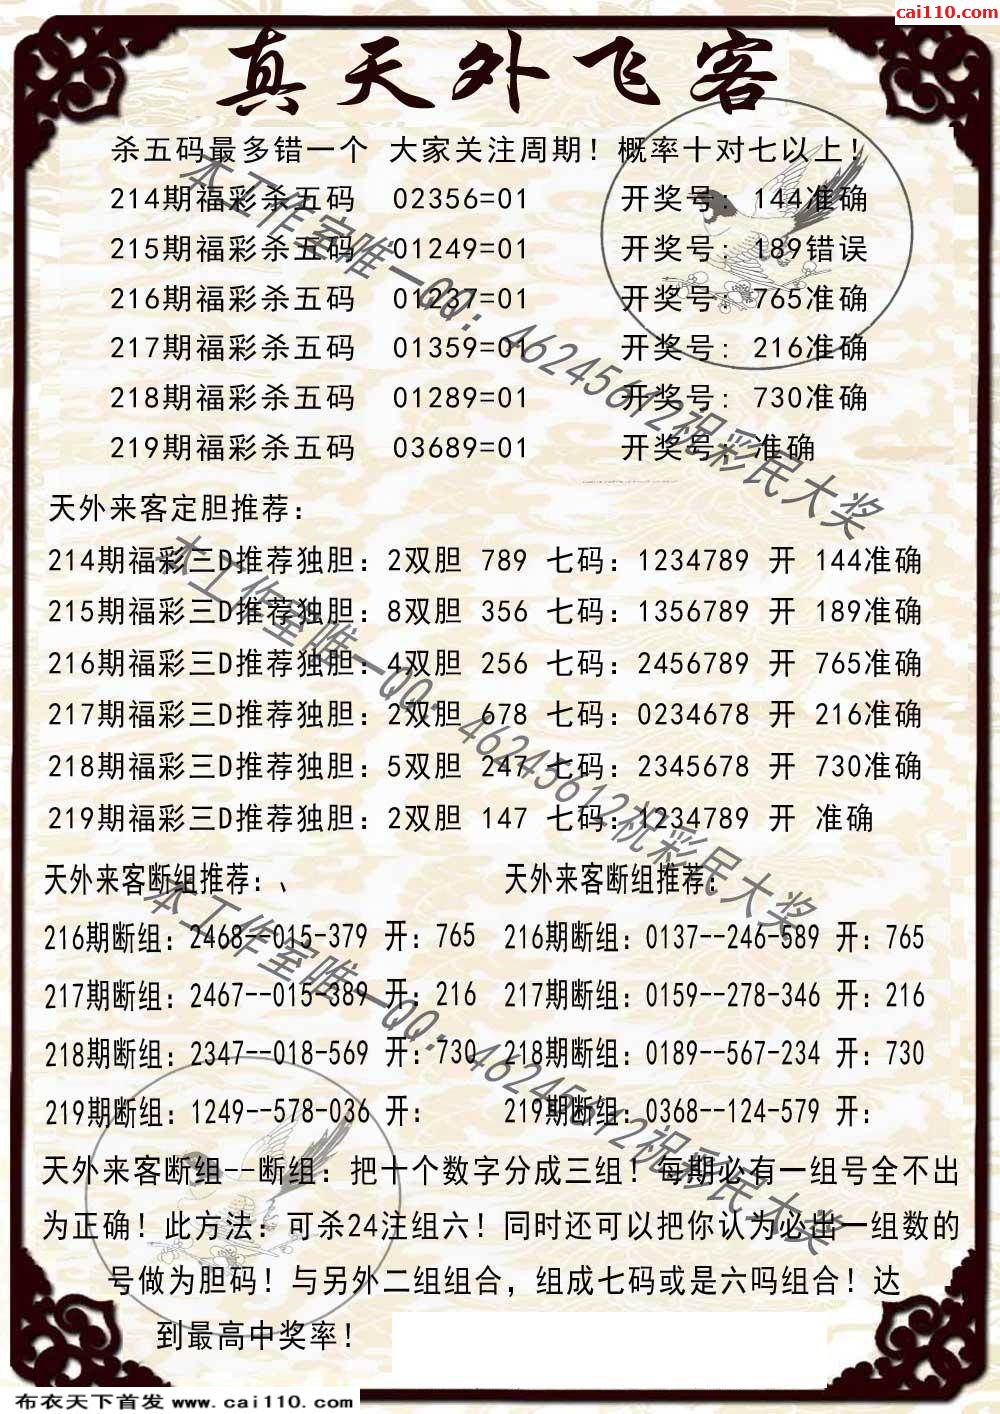 cai110.com
真天外飞客
杀五码最多错一个 大家关注周期！概率十对七以上！
214期福彩杀五码 02356=01 开奖号: 144准确
215期福彩杀五码 01249=01 开奖号: 189错误
216期福彩杀五码 01237=01 开奖号: 765准确
217期福彩杀五码 01359=01 开奖号: 216准确
218期福彩杀五码 01289=01 开奖号: 730准确
219期福彩杀五码 03689=01 开奖号: 准确
天外来客定胆推荐:
214期福彩三D推荐独胆: 2双胆 789 七码: 1234789 开 144准确
215期福彩三D推荐独胆: 8双胆 356 七码: 1356789 开 189准确
216期福彩三D推荐独胆: 4双胆 256 七码: 2456789 开 765准确
217期福彩三D推荐独胆: 2双胆 678 七码: 0234678 开 216准确
218期福彩三D推荐独胆: 5双胆 247 七码: 2345678 开 730准确
219期福彩三D推荐独胆: 2双胆 147 七码: 1234789 开 准确
天外来客断组推荐:、 天外来客断组推荐:
216期断组: 2468--015-379 开: 765 216期断组: 0137--246-589 开: 765
217期断组: 2467--015-389 开: 216 217期断组: 0159--278-346 开: 216
218期断组: 2347--018-569 开: 730 218期断组: 0189--567-234 开: 730
219期断组: 1249--578-036 开: 219期断组: 0368--124-579 开:
天外来客断组--断组: 把十个数字分成三组！每期必有一组号全不出
为正确！此方法: 可杀24注组六！同时还可以把你认为必出一组数的
号做为胆码！与另外二组组合，组成七码或是六吗组合！达
到最高中奖率！
本工作室唯一QQ: 46245612祝彩民大奖
本工作室唯一QQ: 46245612祝彩民大奖
本工作室唯一QQ: 46245612祝彩民大奖
布衣天下首发 www.cai110.com